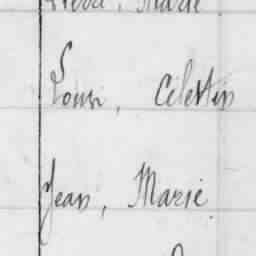 Marie
Louis, Célestin
Jean, Marie